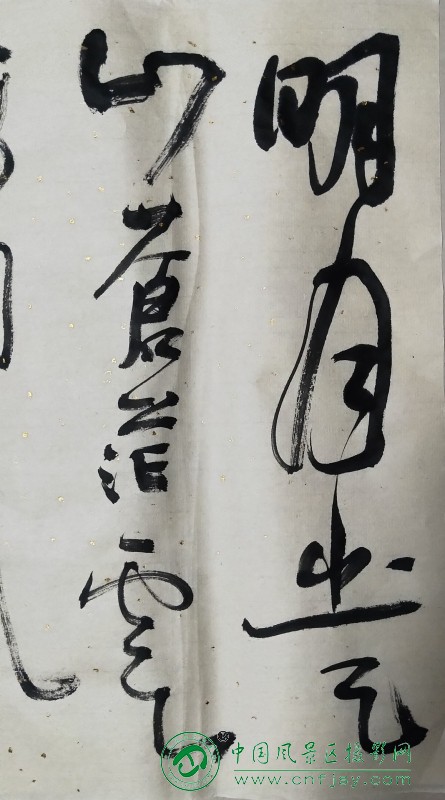 明月出天
山蒼茫雲
中国风景区摄影网
www.cnfjsy.com